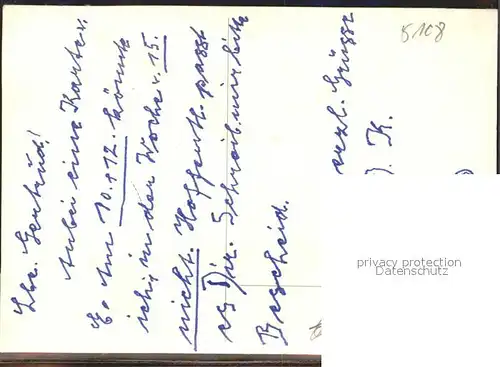 Lbe. Gertrud!
Anbei eine Karte v.
E. Am 10. + 12. könnte
ich, in der Woche v. 15.
nicht. Hoffentl. passt
es Dir. Schreib mir bitte
Bescheid.
erzl. Grüsse
K.
5108
privacy protection
Datenschutz